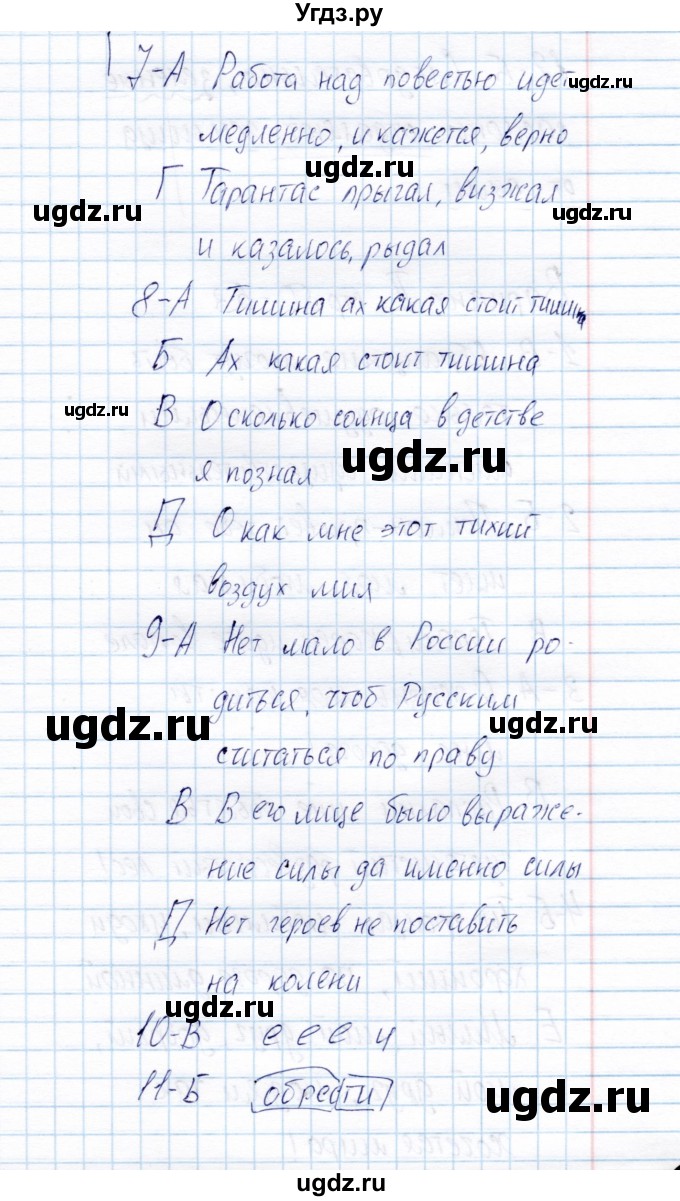 Угдз.ру
7-А Работа над повестью идет
ugdz.ru
медленно, и кажется, верно
ugdz.ru
Г Тарантас прыгал, визжал
ugdz.ru
ugdz.ru
и казалось, рыдал
8-А Тишина ах какая стоит тишина
Б Ах какая стоит тишина
ugdz.ru
В О сколько солнца в детстве
ugdz.ru
я познал
Д О как мне этот тихий
ugdz.ru
воздух мил
9-А Нет мало в России ро-
диться, чтоб Русским
ugdz.ru
ugdz.ru
считаться по праву
В В его лице было выраже-
ние силы да именно силы
Д Нет героев не поставить
на колени
ugdz.ru
10-В е е е и
11-Б обрести
ugdz.ru
ugdz.ru